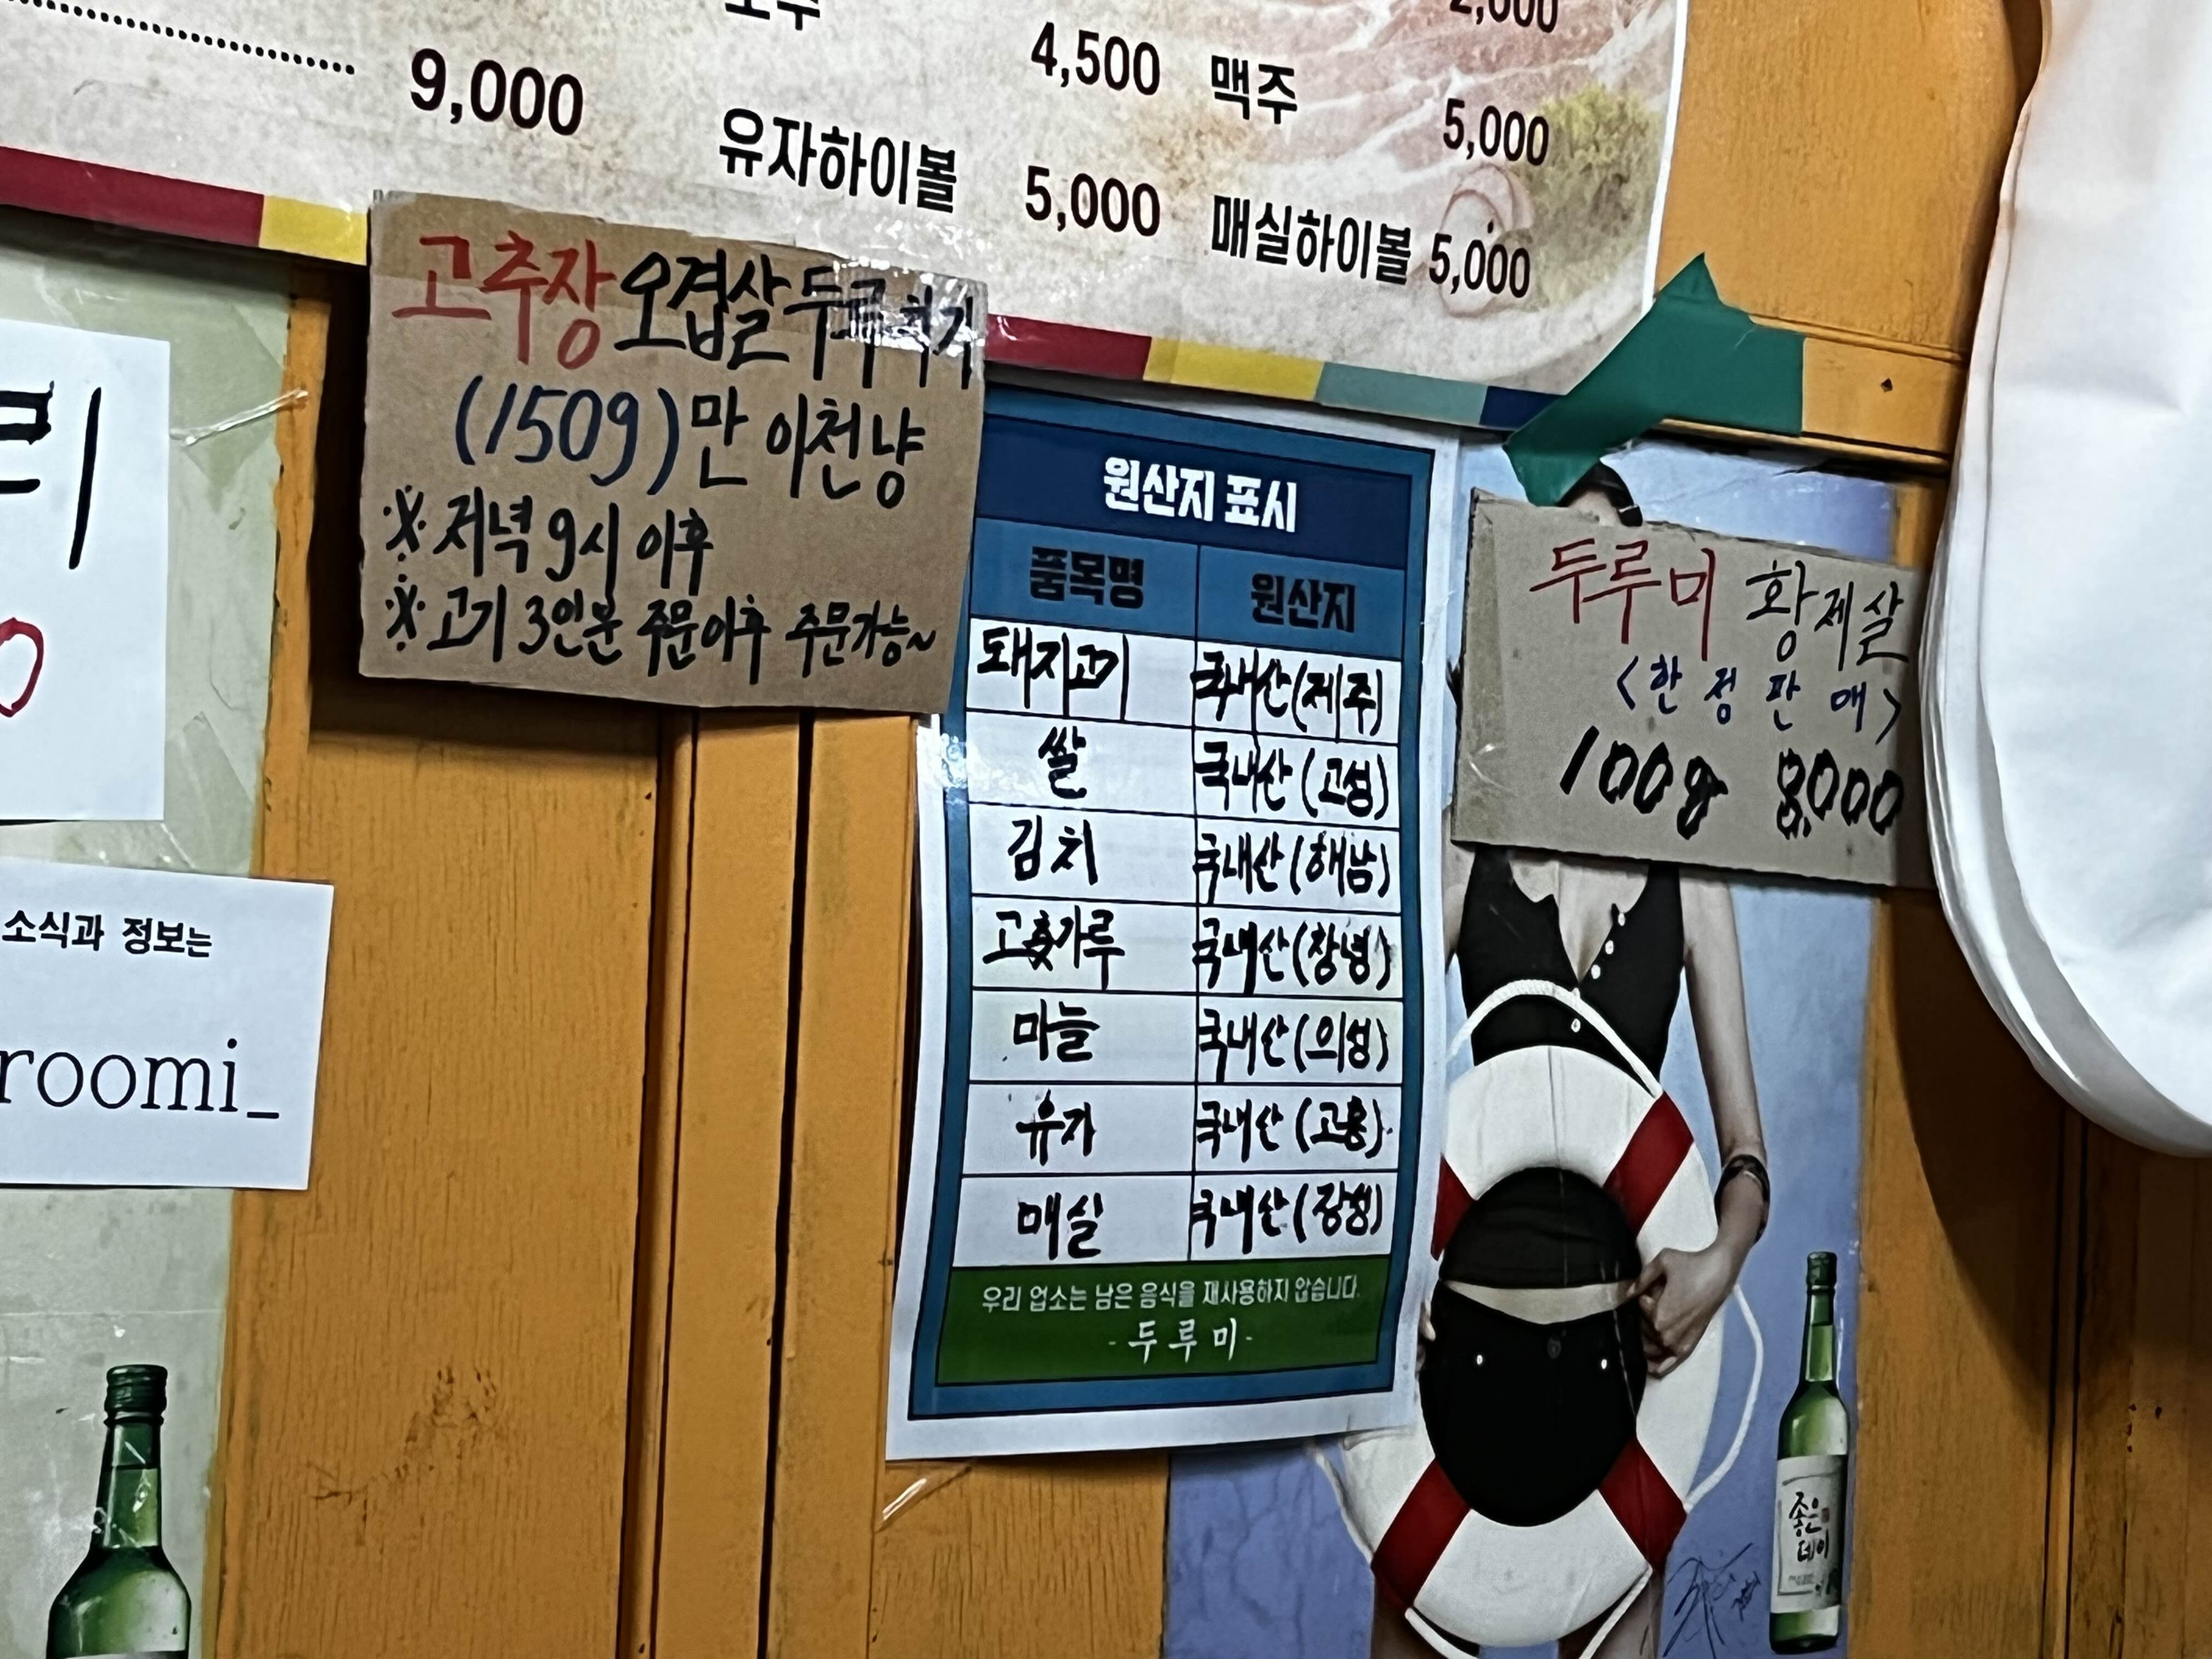 9,000
소주 4,500
2,000
맥주 5,000
유자하이볼 5,000
매실하이볼 5,000
고추장 오겹살 두루치기
(150g) 만 이천냥
※ 저녁 9시 이후
※ 고기 3인분 주문이후 주문가능~
원산지 표시
품목명 원산지
돼지고기 국내산(제주)
쌀 국내산(고성)
김치 국내산(해남)
고춧가루 국내산(창녕)
마늘 국내산(의성)
유자 국내산(고흥)
매실 국내산(장성)
우리 업소는 남은 음식을 재사용하지 않습니다.
-두루미-
두루미 황제살
<한정판매>
100g 8,000
리
0
소식과 정보는
roomi_
좋은데이